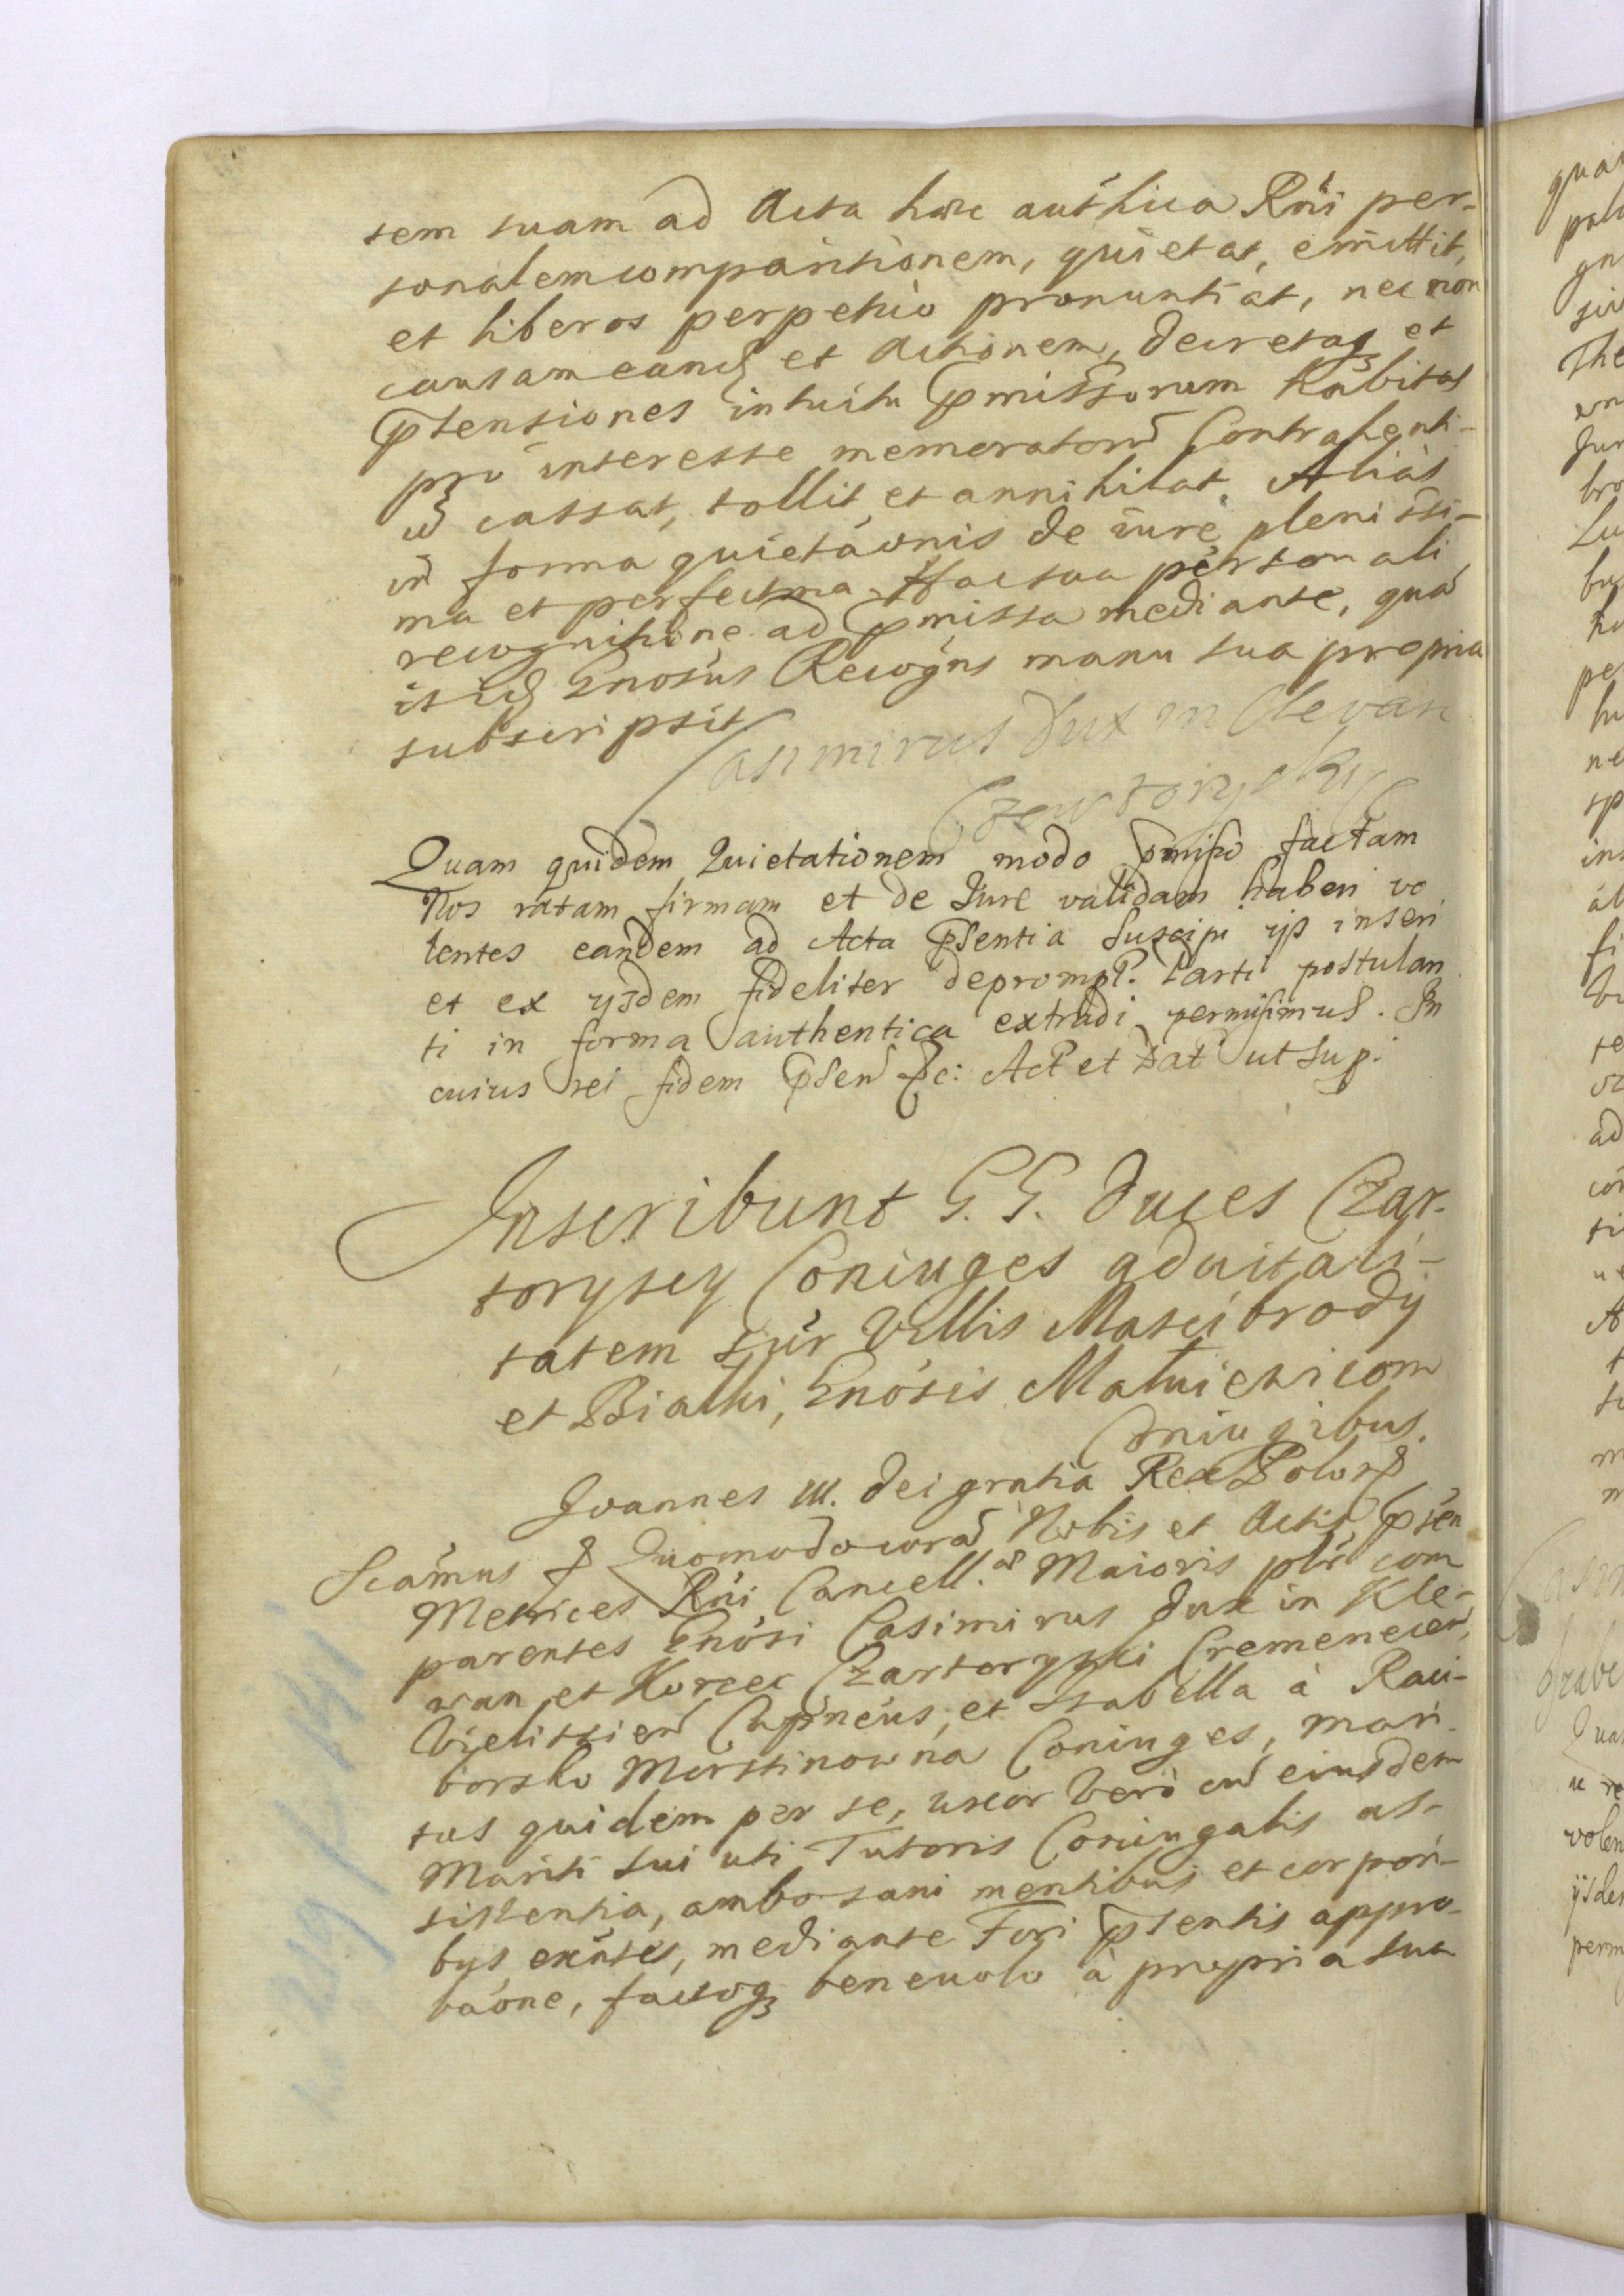 tem suam ad Acta haec authica Rńi per-
sonalem comparitionem, quietat, emittit,
et liberos perpetuo pronuntiat, nec non
causam eandꝫ et Actionem, decretaqꝫ et
p̃tensiones intuitu p̃missorum habitas
pro interesse memoratorũ Contrahenti-
ũ cassat, tollit et annihilat. Alias
in forma quietãonis de iure plenissi-
ma et perfectma. Hac sua personali
recognitione ad p̃missa mediante, quã
itidꝫ Gnosus Recogns manu sua propria
subscripsit
Casimirus Dux in Clevan
Czartoryski
Quam quidem Quietationem modo p̃misso factam
Nos ratam firmam et de Jure validam haberi vo
lentes eandem ad Acta p̃sentia Suscipi ijs inseri
et ex ijsdem fideliter deprompt. Parti postulan
ti in forma authentica extradi permisimus. In
cuius rei fidem p̃sen &c: Act et Dat ut sup.
Inscribunt G. G. Duces Czar-
toryscy Coniuges advitali-
tatem sup Villis Masei brody
et Bialki, Gnosis Matuiewicom
Coniugibus.
Joannes III. Dei gratia Rex Polor &
Scãmus & Quomodo corã Nobis et Actis p̃sen
Metrices Rńi Cancell.æ Maioris pl̃r com
parentes Gnosi Casimirus Dux in Kle-
wan et Korzec Czartoryski Cremenecen,
Wielitien Capneus, et Isabella à Raci-
borsko Morstinowna Coniuges, mari-
tus quidem per se, uxor vero cũ eiusdem
Mariti sui uti Tutoris Coniugalis as-
sistentia, ambo sani mentibus et corpori-
bus exñtes, mediante Fori p̃sentis appro-
baõne, factoqꝫ benevolo à propria sua